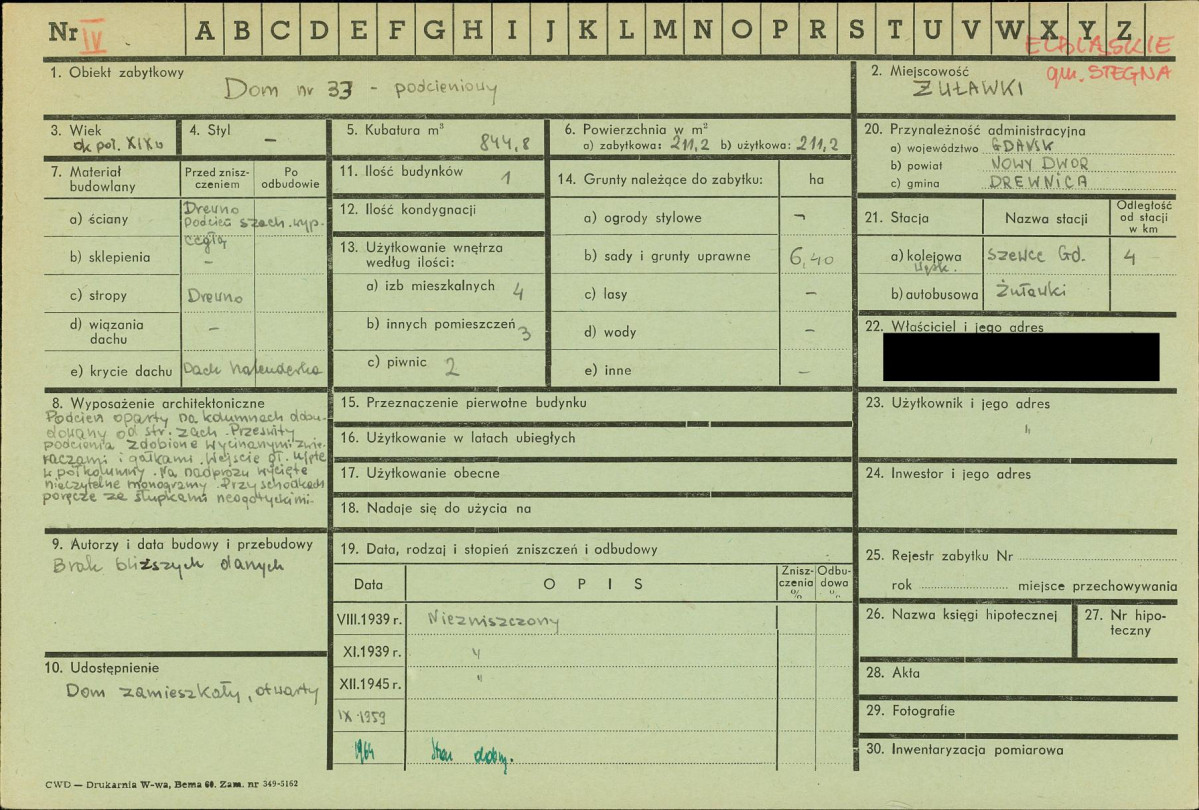 Nr IV A B C D E F G H I J K L M N O P R S T U V W X Y Z
ELBLĄSKIE
gm. STEGNA
1. Obiekt zabytkowy
Dom nr 33 - podcieniowy
2. Miejscowość
ŻUŁAWKI
3. Wiek
ok poł. XIX w
4. Styl
-
5. Kubatura m³
844,8
6. Powierzchnia w m²
a) zabytkowa: 211,2 b) użytkowa: 211,2
20. Przynależność administracyjna
a) województwo GDAŃSK
b) powiat NOWY DWÓR
c) gmina DREWNICA
7. Materiał budowlany
Przed zniszczeniem
Po odbudowie
a) ściany Drewno
Podcień szach. wyp.
cegłą
b) sklepienia -
c) stropy Drewno
d) wiązania dachu -
e) krycie dachu Dach holenderka
11. Ilość budynków 1
12. Ilość kondygnacji
13. Użytkowanie wnętrza
według ilości:
a) izb mieszkalnych 4
b) innych pomieszczeń 3
c) piwnic 2
14. Grunty należące do zabytku: ha
a) ogrody stylowe -
b) sady i grunty uprawne 6,40
c) lasy -
d) wody -
e) inne -
21. Stacja Nazwa stacji Odległość od stacji w km
a) kolejowa Szewce Gd. 4
wąsk.
b) autobusowa Żuławki
22. Właściciel i jego adres
8. Wyposażenie architektoniczne
Podcień oparty na kolumnach dobu-
dowany od str. zach. Prześwity
podcienia zdobione wycinanymi zwie-
raczami i gałkami. Wejście gł. ujęte
w półkolumny. Na nadprożu wycięte
nieczytelne monogramy. Przy schodkach
poręcze ze słupkami neogotyckimi.
15. Przeznaczenie pierwotne budynku
16. Użytkowanie w latach ubiegłych
17. Użytkowanie obecne
18. Nadaje się do użycia na
23. Użytkownik i jego adres
"
24. Inwestor i jego adres
9. Autorzy i data budowy i przebudowy
Brak bliższych danych
10. Udostępnienie
Dom zamieszkały, otwarty
19. Data, rodzaj i stopień zniszczeń i odbudowy
Data OPIS Zniszczenia % Odbudowa %
VIII.1939 r. Niezniszczony
XI.1939 r. "
XII.1945 r. "
IX.1959
1964 Stan dobry.
25. Rejestr zabytku Nr
rok miejsce przechowywania
26. Nazwa księgi hipotecznej
27. Nr hipo-
teczny
28. Akta
29. Fotografie
30. Inwentaryzacja pomiarowa
CWD — Drukarnia W-wa, Bema 60. Zam. nr 349-5162